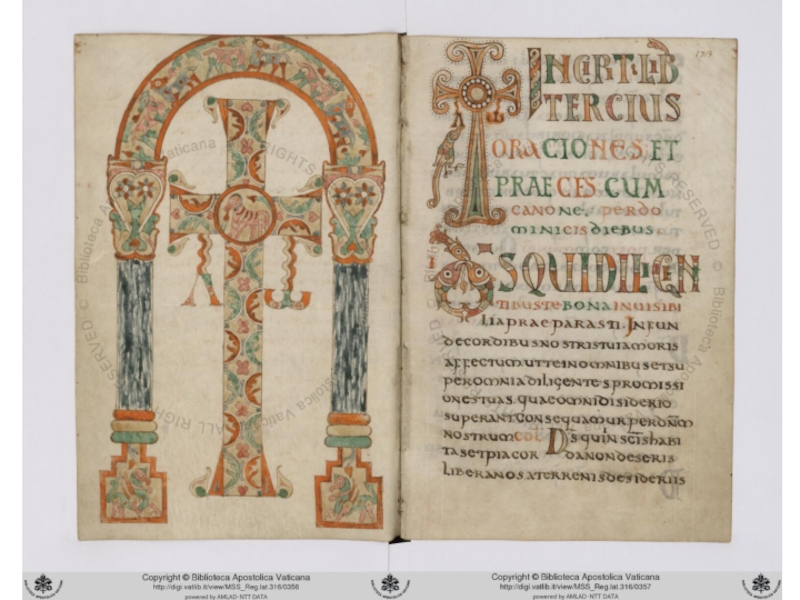 173
INCIPIT LIB
TERCIUS
ORACIONES ET
PRAECES CUM
CANONE PERDO
MINICIS DIEBUS
DS QUI DILIGEN
TIBUS TE BONA INVISIBI
LIA PRAEPARASTI. INFUN
DE CORDIBUS NOSTRIS TUI AMORIS
AFFECTUM UT TE IN OMNIBUS ET SU
PER OMNIA DILIGENTES PROMISSI
ONES TUAS. QUAE OMNI DISIDERIO
SUPERANT CONSEQUAMUR PER DNM
NOSTRUM COL DS QUI IN SCIS HABI
TAS ET PIA COR DA NON DESERIS
LIBERA NOS A TERRENIS DESIDERIIS
Copyright © Biblioteca Apostolica Vaticana
http://digi.vatlib.it/view/MSS_Reg.lat.316/0356
powered by AMLAD-NTT DATA
Copyright © Biblioteca Apostolica Vaticana
http://digi.vatlib.it/view/MSS_Reg.lat.316/0357
powered by AMLAD-NTT DATA